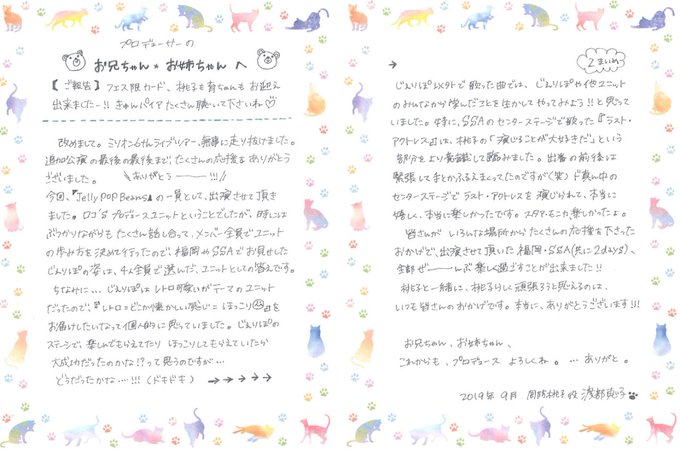 プロデューサーの
お兄ちゃん★お姉ちゃん へ
【ご報告】フェス限カード、桃子も育ちゃんもお迎え
出来ましたー!! きゅんパイア たくさん聴いて下さいね♡
改めまして。ミリオン6thライブツアー、無事に走り抜けました。
追加公演の最後の最後まで、たくさんの応援を ありがとう
ございました。 ＼ありがとうーーー!!!／
今回、『Jelly POP Beans』の一員として、出演させて頂き
ました。ロコ'S プロデュースユニットということでしたが、時には
ぶつかりながらも たくさん話し合って、メンバー全員でユニット
の歩み方を決めて行ったので、福岡やSSAでお見せした
じぇりぽの姿は、4人全員で選んだ、ユニットとしての答えです。
ちなみに…、じぇりぽはレトロ可愛いがテーマのユニット
だったので、『レトロ＝どこか懐かしい感じ＝ほっこり』を
お届けしたいなって個人的に思っていました。じぇりぽの
ステージで、楽しんでもらえてたり ほっこりしてもらえていたら
大成功だったのかな!?って思うのですが…
どうだったかな…!!! (ドキドキ) →→→→→
→
2まいめ
じぇりぽ以外で歌った曲では、じぇりぽや他ユニット
のみんなから学んだコトを生かしてやってみよう!!と思って
いました。特に、SSAのセンターステージで歌った『ラスト・
アクトレス』は、桃子の「演じることが大好きだ」という
部分をより意識して臨みました。出番の前後は
緊張してまとかふるえまくってたのですが(笑) ド真ん中の
センターステージで ラスト・アクトレス を演じられて、本当に
嬉しく、本当に楽しかったです。スタマスもこれ楽しかったよ。
皆さんが いろんな場所から たくさんの応援を下さった
おかげで、出演させて頂いた 福岡・SSA(共に2days)、
全部ぜーーんぶ 楽しく過ごすことが出来ました!!
桃子と一緒に、桃子らしく頑張ろうと思えるのは、
いつも皆さんのおかげです。本当に、ありがとうございます!!!
お兄ちゃん、お姉ちゃん、
これからも、プロデュース よろしくね。…ありがと。
2019年 9月 周防桃子役 渡部恵子